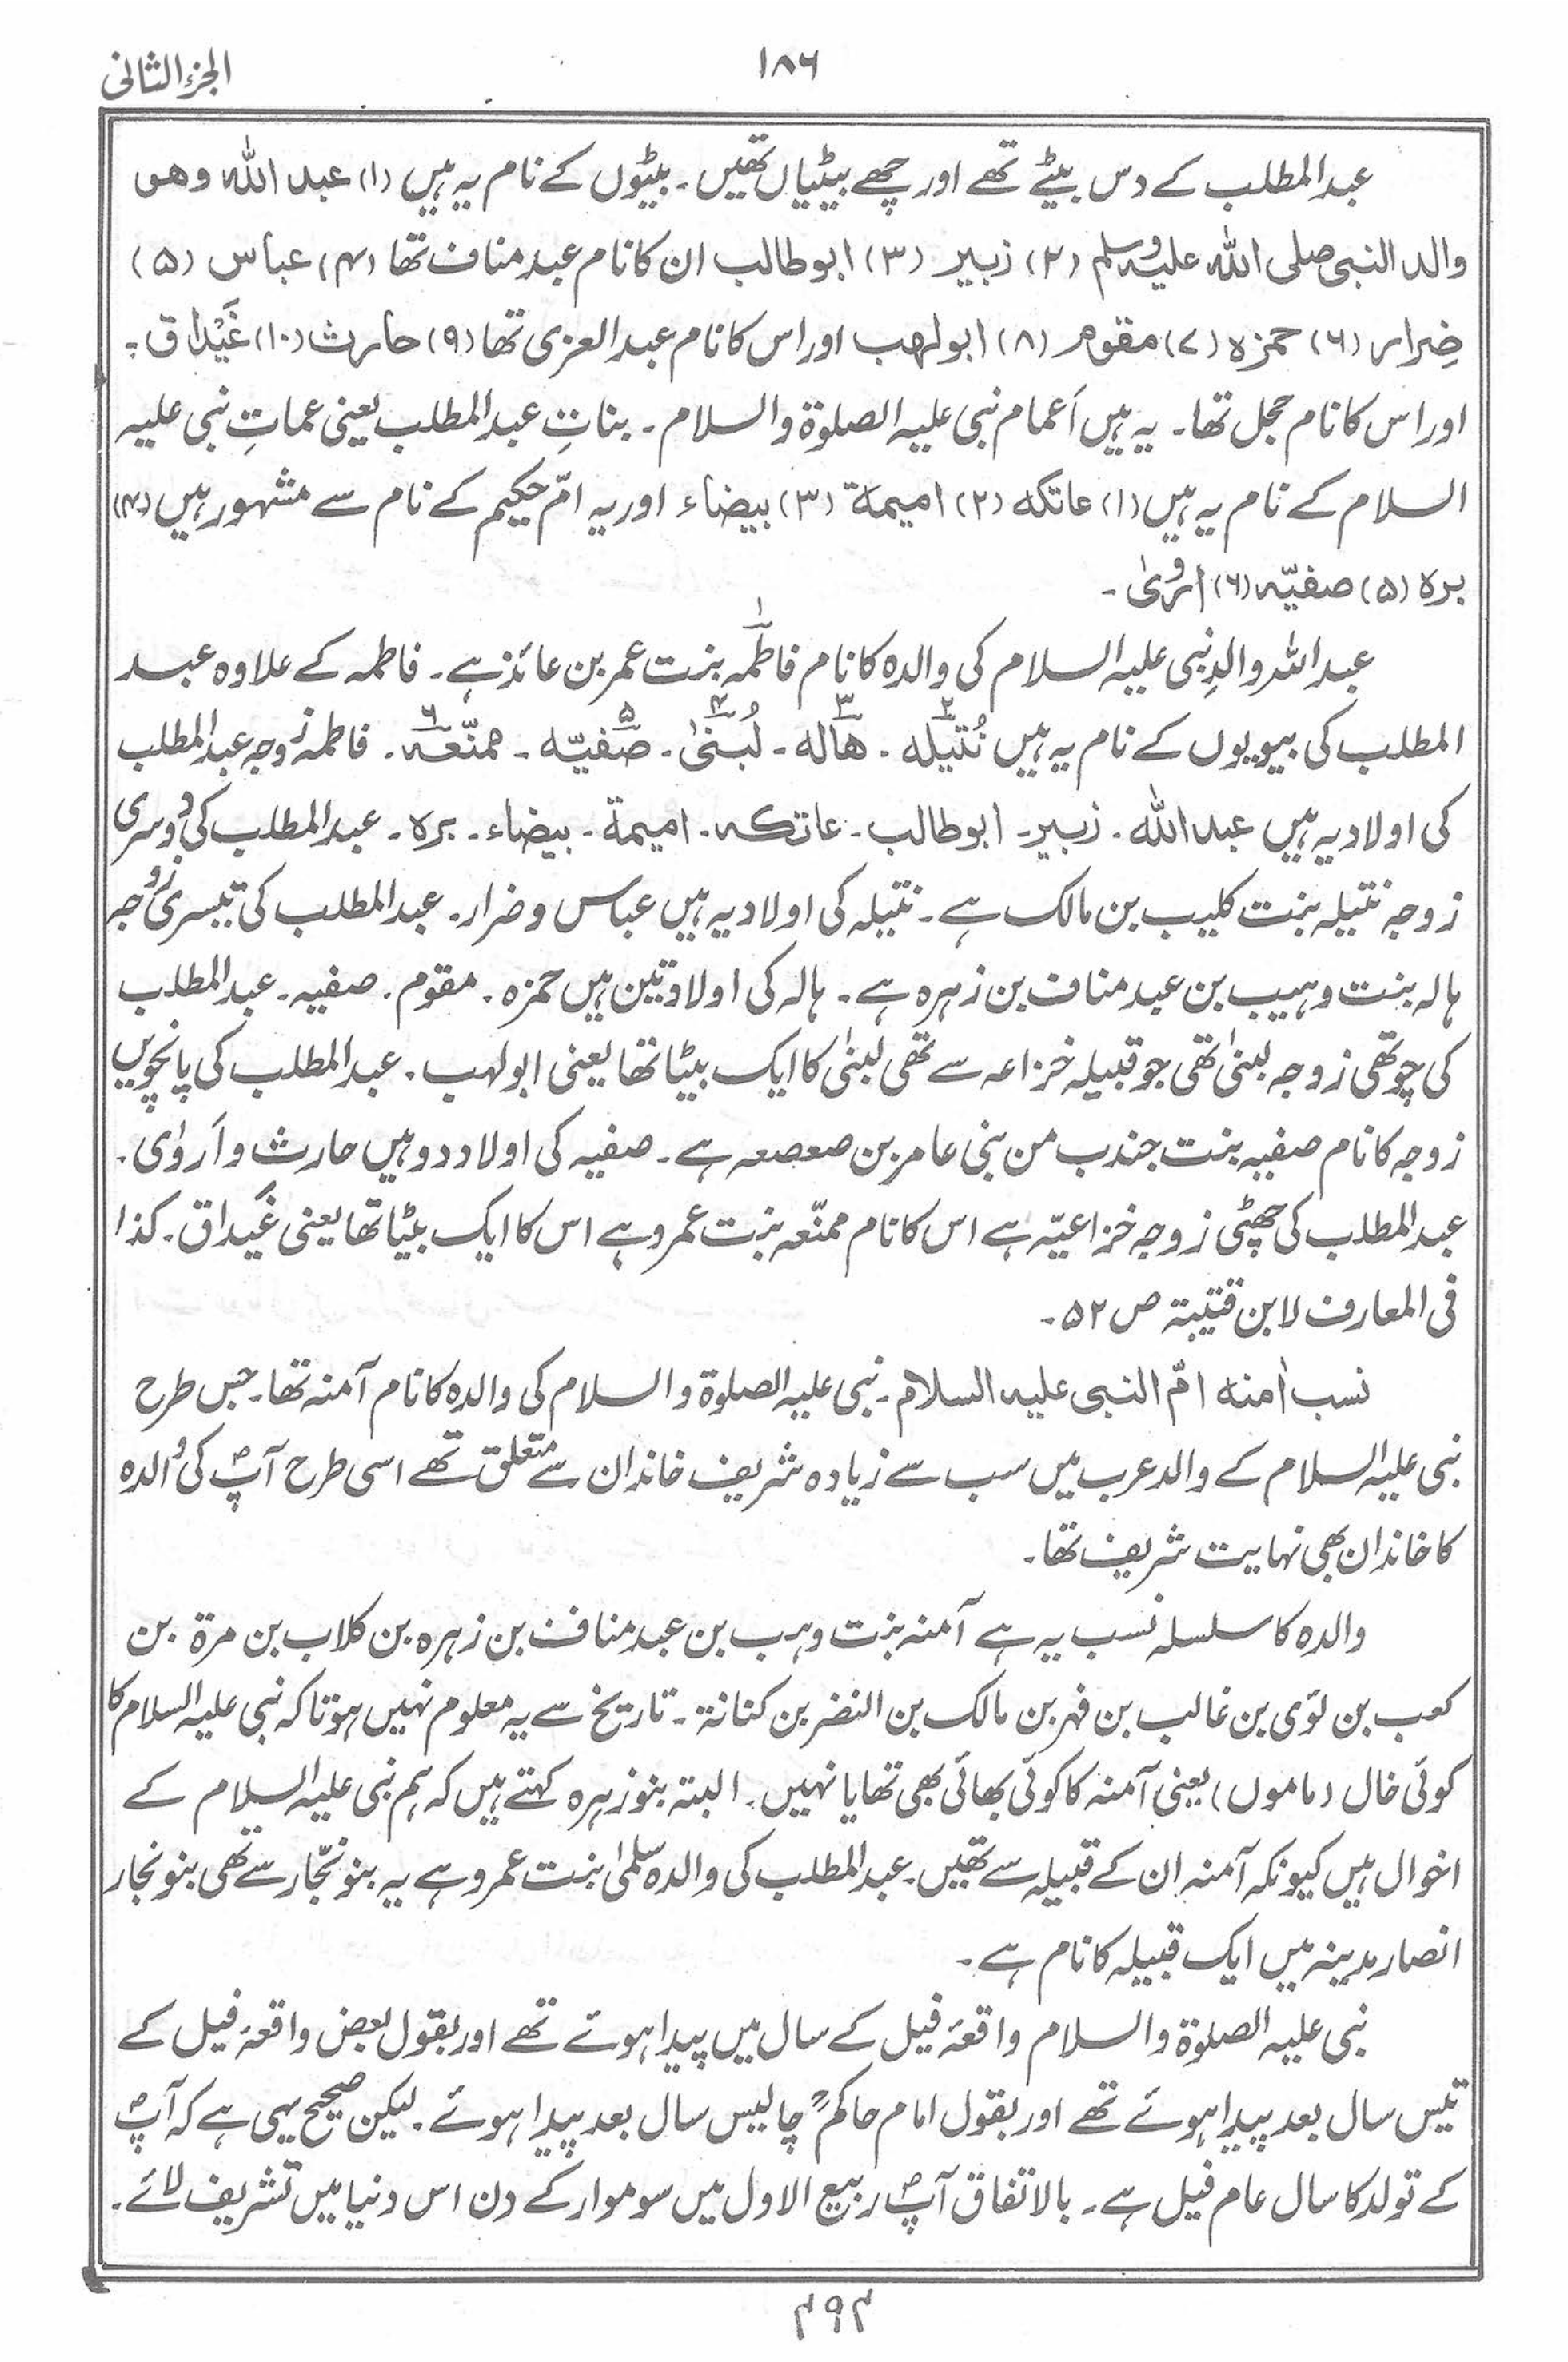 الجزء الثانی
۱۸۶
عبدالمطلب کے دس بیٹے تھے اور چھے بیٹیاں تھیں ۔ بیٹوں کے نام یہ ہیں (۱) عبد اللہ وھو
والد النبی صلی اللہ علیہ وسلم (۲) زبیر (۳) ابوطالب ان کا نام عبد مناف تھا (۴) عباس (۵)
ضِرار (۶) حمزہ (۷) مقوم (۸) ابولھب اور اس کا نام عبدالعزی تھا (۹) حارث (۱۰) غَیْداق ۔
اور اس کا نام حجل تھا ۔ یہ ہیں اَعمام نبی علیہ الصلوۃ والسلام ۔ بناتِ عبدالمطلب یعنی عماتِ نبی علیہ
السلام کے نام یہ ہیں (۱) عاتکہ (۲) امیمۃ (۳) بیضاء اور یہ امّ حکیم کے نام سے مشہور ہیں (۴)
برہ (۵) صفیّہ (۶) اروٰی ۔
عبداللہ والدِ نبی علیہ السلام کی والدہ کا نام فاطمہ۱ بنت عمر بن عائذ ہے ۔ فاطمہ کے علاوہ عبد
المطلب کی بیویوں کے نام یہ ہیں نُتیلہ۲ ۔ ھالہ۳ ۔ لُبنیٰ۴ ۔ صفیّہ۵ ۔ ممنّعہ۶ ۔ فاطمہ زوجہ عبدالمطلب
کی اولاد یہ ہیں عبد اللہ ۔ زبیر ۔ ابوطالب ۔ عاتکہ ۔ امیمۃ ۔ بیضاء ۔ برہ ۔ عبدالمطلب کی دوسری
زوجہ نتیلہ بنت کلیب بن مالک ہے ۔ نتیلہ کی اولاد یہ ہیں عباس وضرار ۔ عبدالمطلب کی تیسری زوجہ
ہالہ بنت وہیب بن عبد مناف بن زہرہ ہے ۔ ہالہ کی اولاد تین ہیں حمزہ ۔ مقوم ۔ صفیہ ۔ عبدالمطلب
کی چوتھی زوجہ لبنیٰ تھی جو قبیلہ خزاعہ سے تھی لبنیٰ کا ایک بیٹا تھا یعنی ابولہب ۔ عبدالمطلب کی پانچویں
زوجہ کا نام صفیہ بنت جندب من بنی عامر بن صعصعہ ہے ۔ صفیہ کی اولاد دو ہیں حارث واَروٰی ۔
عبدالمطلب کی چھٹی زوجہ خزاعیّہ ہے اس کا نام ممنّعہ بنت عمرو ہے اس کا ایک بیٹا تھا یعنی غَیداق ۔ کذا
فی المعارف لابن قتیبۃ ص ۵۲ ۔
نسب اٰمنہ امّ النبی علیہ السلام ۔ نبی علیہ الصلوۃ والسلام کی والدہ کا نام آمنہ تھا ۔ جس طرح
نبی علیہ السلام کے والد عرب میں سب سے زیادہ شریف خاندان سے متعلق تھے اسی طرح آپؐ کی والدہ
کا خاندان بھی نہایت شریف تھا ۔
والدہ کا سلسلہ نسب یہ ہے آمنہ بنت وہب بن عبد مناف بن زہرہ بن کلاب بن مرۃ بن
کعب بن لؤی بن غالب بن فہر بن مالک بن النضر بن کنانۃ ۔ تاریخ سے یہ معلوم نہیں ہوتا کہ نبی علیہ السلام کا
کوئی خال (ماموں) یعنی آمنہ کا کوئی بھائی بھی تھا یا نہیں ۔ البتہ بنو زہرہ کہتے ہیں کہ ہم نبی علیہ السلام کے
اخوال ہیں کیونکہ آمنہ ان کے قبیلہ سے تھیں ۔ عبدالمطلب کی والدہ سلمیٰ بنت عمرو ہے یہ بنو نجّار سے تھی بنو نجار
انصار مدینہ میں ایک قبیلہ کا نام ہے ۔
نبی علیہ الصلوۃ والسلام واقعۂ فیل کے سال میں پیدا ہوئے تھے اور بقول بعض واقعۂ فیل کے
تیس سال بعد پیدا ہوئے تھے اور بقول امام حاکمؒ چالیس سال بعد پیدا ہوئے ۔ لیکن صحیح یہی ہے کہ آپؐ
کے تولد کا سال عام فیل ہے ۔ بالاتفاق آپؐ ربیع الاول میں سوموار کے دن اس دنیا میں تشریف لائے ۔
۴۹۴